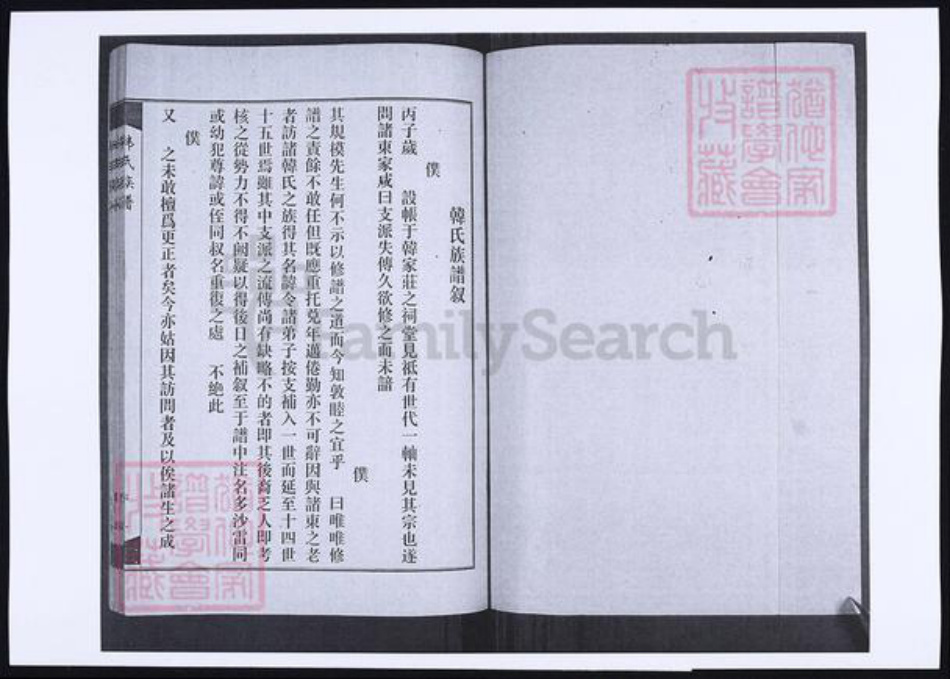 韓氏族譜叙
丙子歲 僕 設帳于韓家莊之祠堂見祗有世代一軸未見其宗也遂
問諸東家咸曰支派失傳久欲修之而未諳
其規模先生何不示以修譜之道而今知敦睦之宜乎 僕 曰唯唯修
譜之責餘不敢任但既應重托兌年邁倦勤亦不可辭因與諸東之老
者訪諸韓氏之族得其名諱令諸弟子按支補入一世而延至十四世
十五世焉雖其中支派之流傳尚有缺略不的者即其後裔乏人即考
核之從勢力不得不闕疑以得後日之補叙至于譜中注名多沙雷同
或幼犯尊諱或侄同叔名重復之處 不絶此
又 僕 之未敢擅爲更正者矣今亦姑因其訪問者及以俟諸生之成
氏族譜
猶他家譜學會收藏
猶他家譜學會收藏
FamilySearch